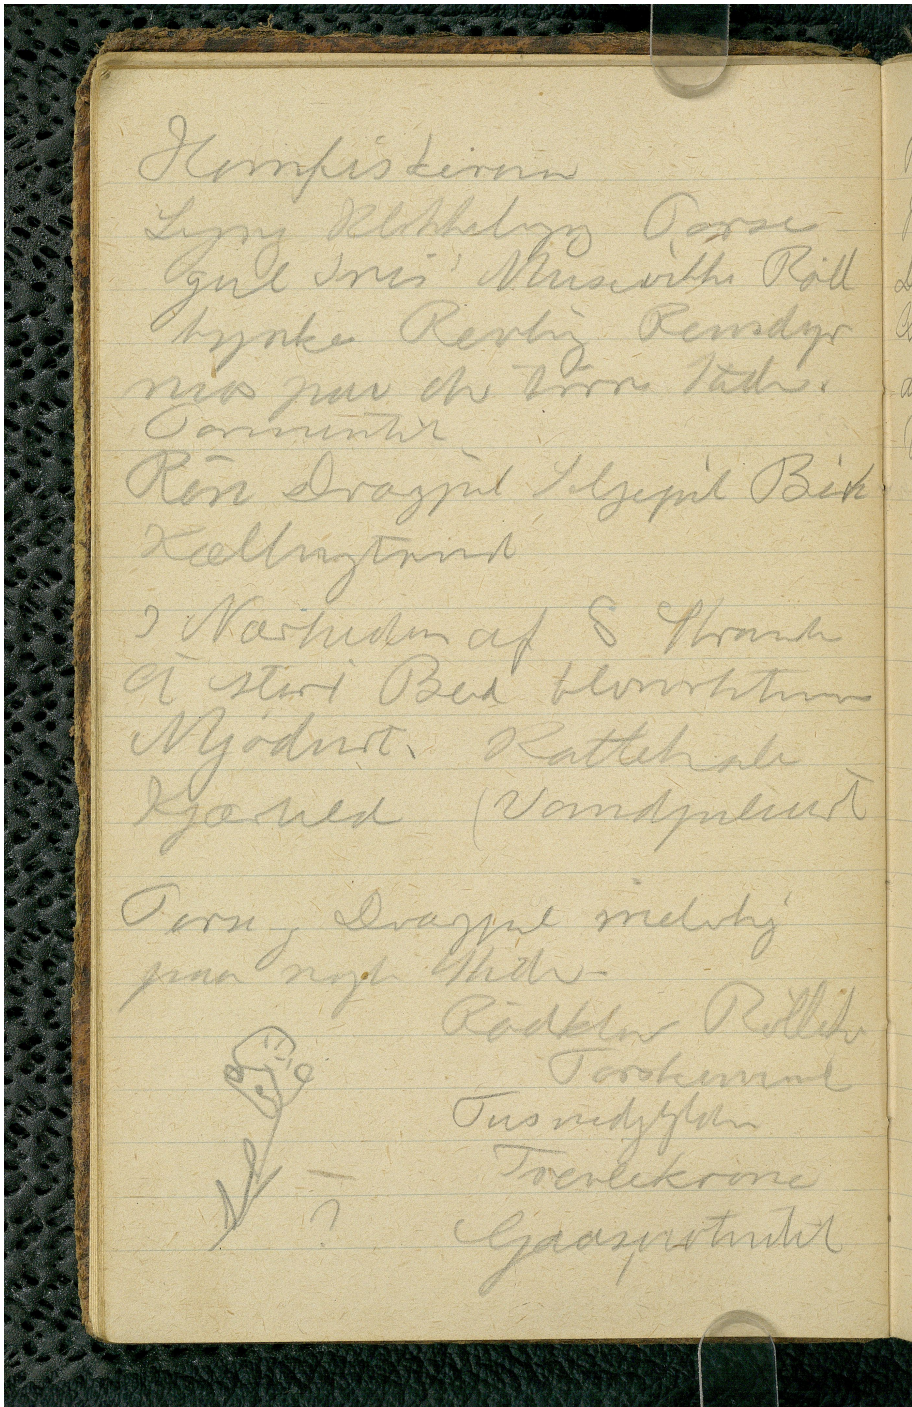 Hornfiskerom
Lyng Klokkelyng Torse
gul Iris Musevikke Röll
tynke Revlig Rensdyr
mos paa de törre Stæder.
Tormentil
Rön Dragpil Selgepil Birk
Kællingtand
I Nærheden af S Strand
et stort Bed blomstrende
Mjödurt. Kattehale
Kjærtild (Vandpileurt
Torse og Dragpil
paa nogle Stæder
Rödklöver Rölleke
Torskemund
Tusindgylden
Trevlekrone
Gaasepotentil
?